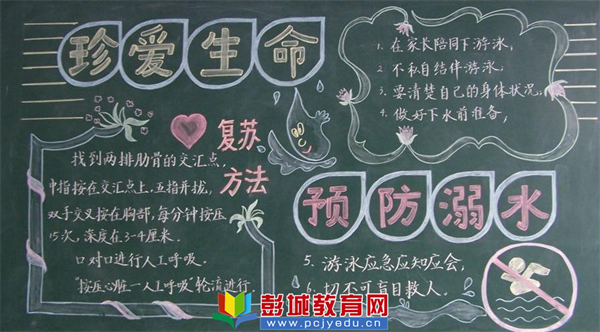 珍爱生命
1. 在家长陪同下游泳,
2. 不私自结伴游泳;
3. 要清楚自己的身体状况,
4. 做好下水前准备,
复苏
方法
找到两排肋骨的交汇点,
中指按在交汇点上,五指并拢,
双手交叉按在胸部,每分钟按压
15次,深度在3-4厘米。
口对口进行人工呼吸。
"按压心脏一人工呼吸"轮流进行。
预防溺水
5. 游泳应急应知应会,
6. 切不可盲目救人。
彭城教育网
www.pcjyedu.cn